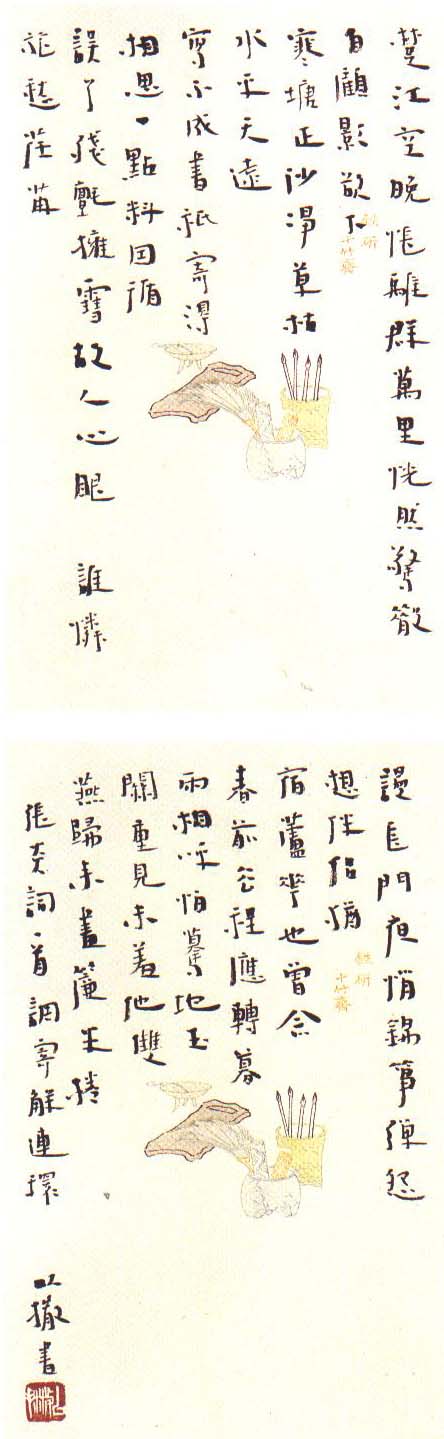 楚江空晚悵離群萬里恍然驚散
自顧影欲下
寒塘正沙淨草枯
水平天遠
寫不成書祇寄得
相思一點料因循
誤了殘氈擁雪故人心眼 誰憐
旅愁荏苒
十竹齋
謾長門夜悄錦箏彈怨
想伴侶猶
宿蘆花也曾念
春前去程應轉暮
雨相呼怕驀地玉
關重見未羞他雙
燕歸來畫簾半捲
張炎詞一首調寄解連環 以撒書
十竹齋